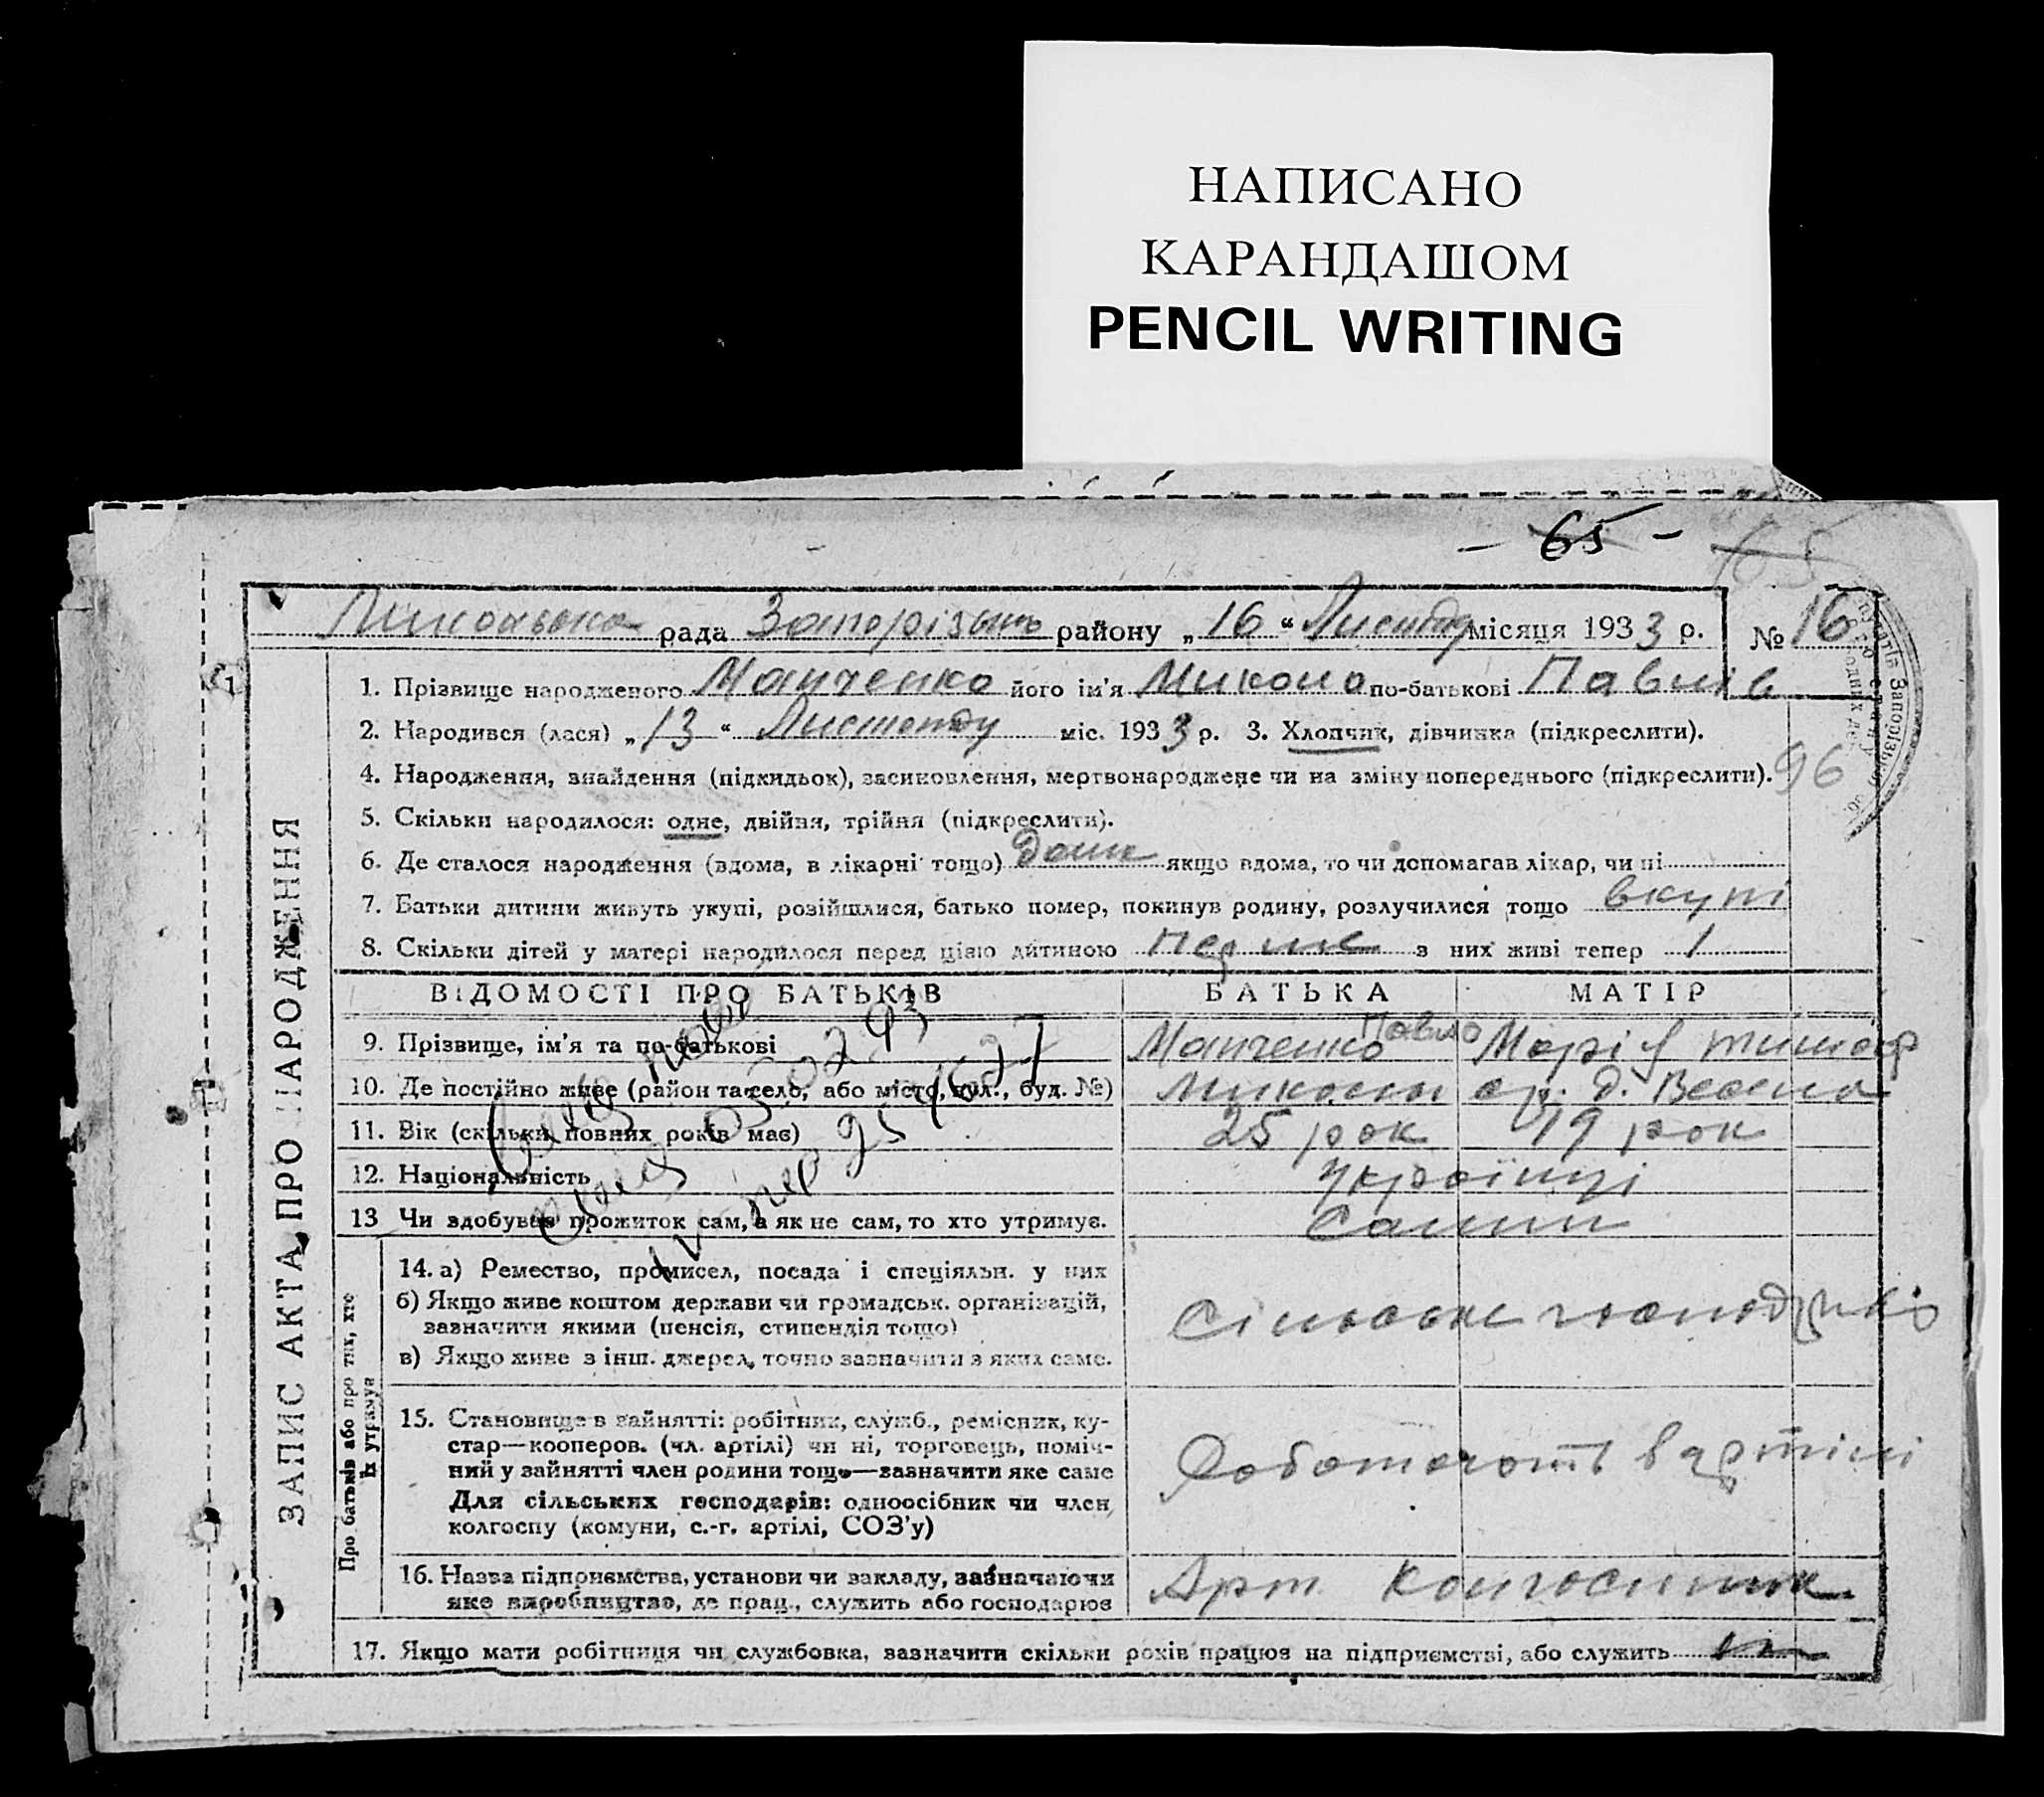 НАПИСАНО
КАРАНДАШОМ
PENCIL WRITING
- 65 - 65
рада района „16“ місяця 1933 р. № 16
1. Прізвище народженого його ім'я Микола по-батькові Павлів
2. Народився (лася) „13“ Листопаду міс. 1933 р. 3. Хлопчик, дівчинка (підкреслити).
4. Народження, знайдення (підкидьок), засиновлення, мертвонароджене чи на зміну попереднього (підкреслити).
96
5. Скільки народилося: одне, двійня, трійня (підкреслити).
6. Де сталося народження (вдома, в лікарні тощо) дома якщо вдома, то чи допомагав лікар, чи ні
7. Батьки дитини живуть укупі, розійшлися, батько помер, покинув родину, розлучилися тощо вкупі
8. Скільки дітей у матері народилося перед цією дитиною з них живі тепер 1
ЗАПИС АКТА ПРО НАРОДЖЕННЯ
ВІДОМОСТІ ПРО БАТЬКІВ БАТЬКА МАТІР
9. Прізвище, ім'я та по-батькові Павло
10. Де постійно живе (район та село, або місто, вул., буд. №)
11. Вік (скільки повних років має) 25 рок 19 рок
12. Національність Українці
13 Чи здобуває прожиток сам, а як не сам, то хто утримує. Самии
Про батьків або про тих, хто їх утримує
14. а) Ремество, промисел, посада і спеціяльн. у них
б) Якщо живе коштом держави чи громадськ. організацій,
зазначити якими (пенсія, стипендія тощо)
в) Якщо живе з інш. джерел, точно зазначити з яких саме.
15. Становище в зайнятті: робітник, служб., ремісник, ку-
стар—кооперов. (чл. артілі) чи ні, торговець, поміч-
ний у зайнятті член родини тощо—зазначити яке саме
Для сільських господарів: одноосібник чи член
колгоспу (комуни, с.-г. артілі, СОЗ'у)
в артілі
16. Назва підприємства, установи чи закладу, зазначаючи
яке виробництво, де прац., служить або господарює
Арт.
17. Якщо мати робітниця чи службовка, зазначити скільки років працює на підприємстві, або служить